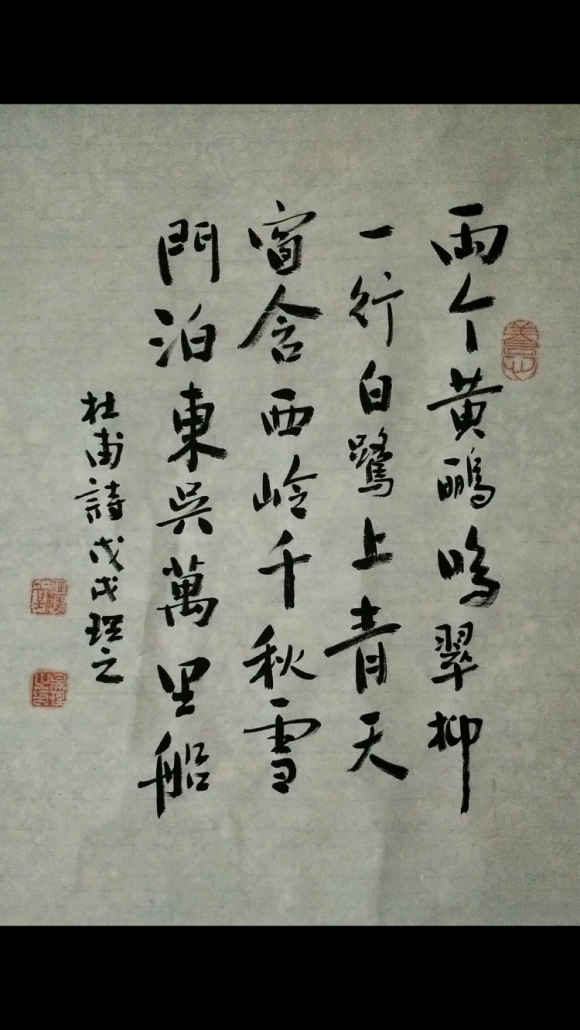 兩个黄鸝鳴翠柳
一行白鷺上青天
窗含西岭千秋雪
門泊東吳萬里船
杜甫詩戊戌理之